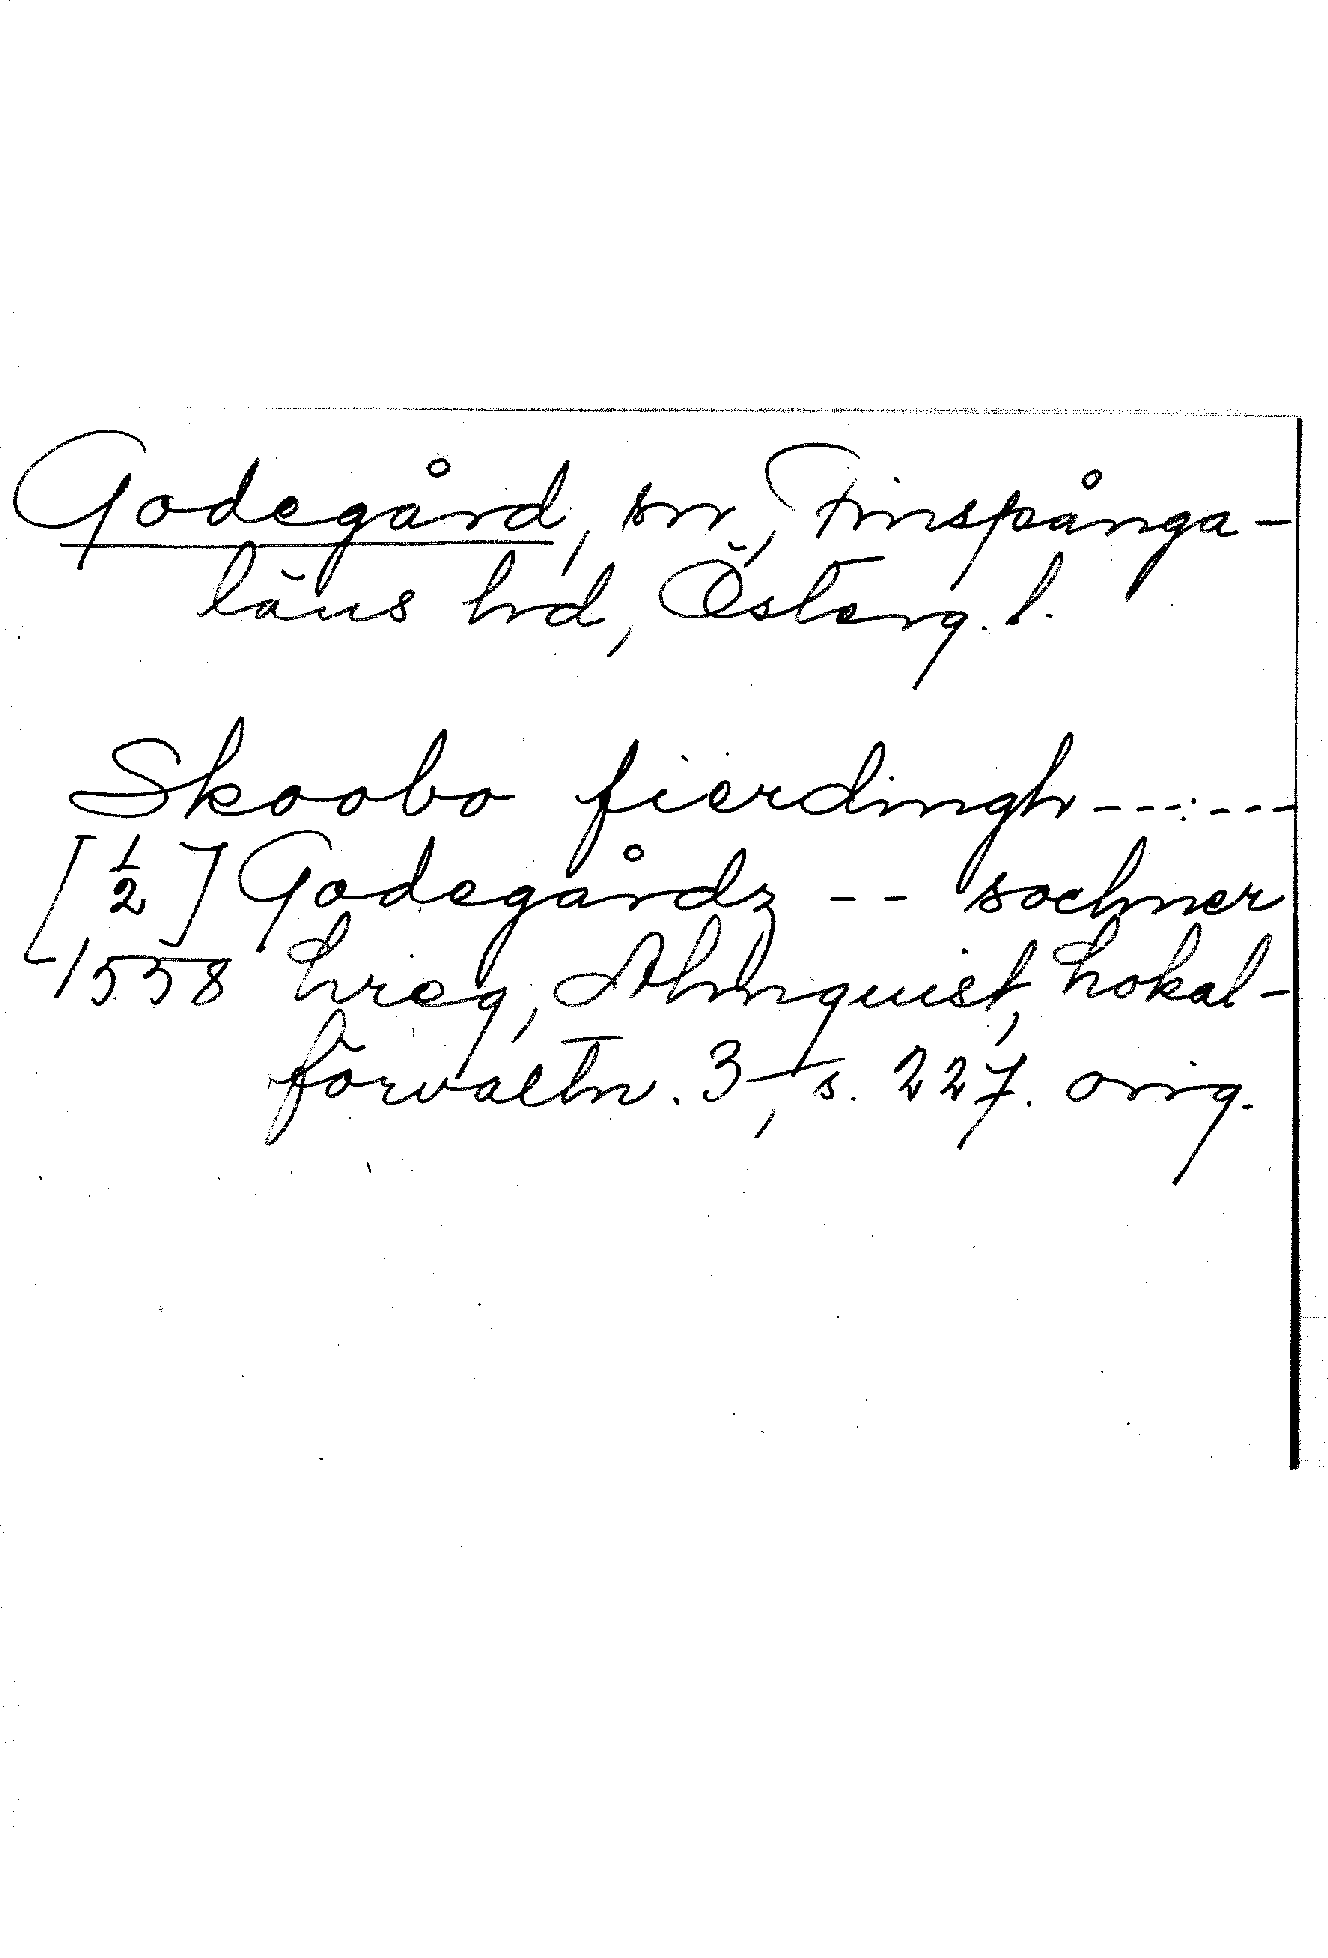 Godegård, sn, Finspånga-
läns hd, Österg. l.
Skoobo fierdingh------
[½] Godegårdz -- sochner
1558 hreg, Almquist, Lokal-
förvaltn. 3, s. 227. orig.